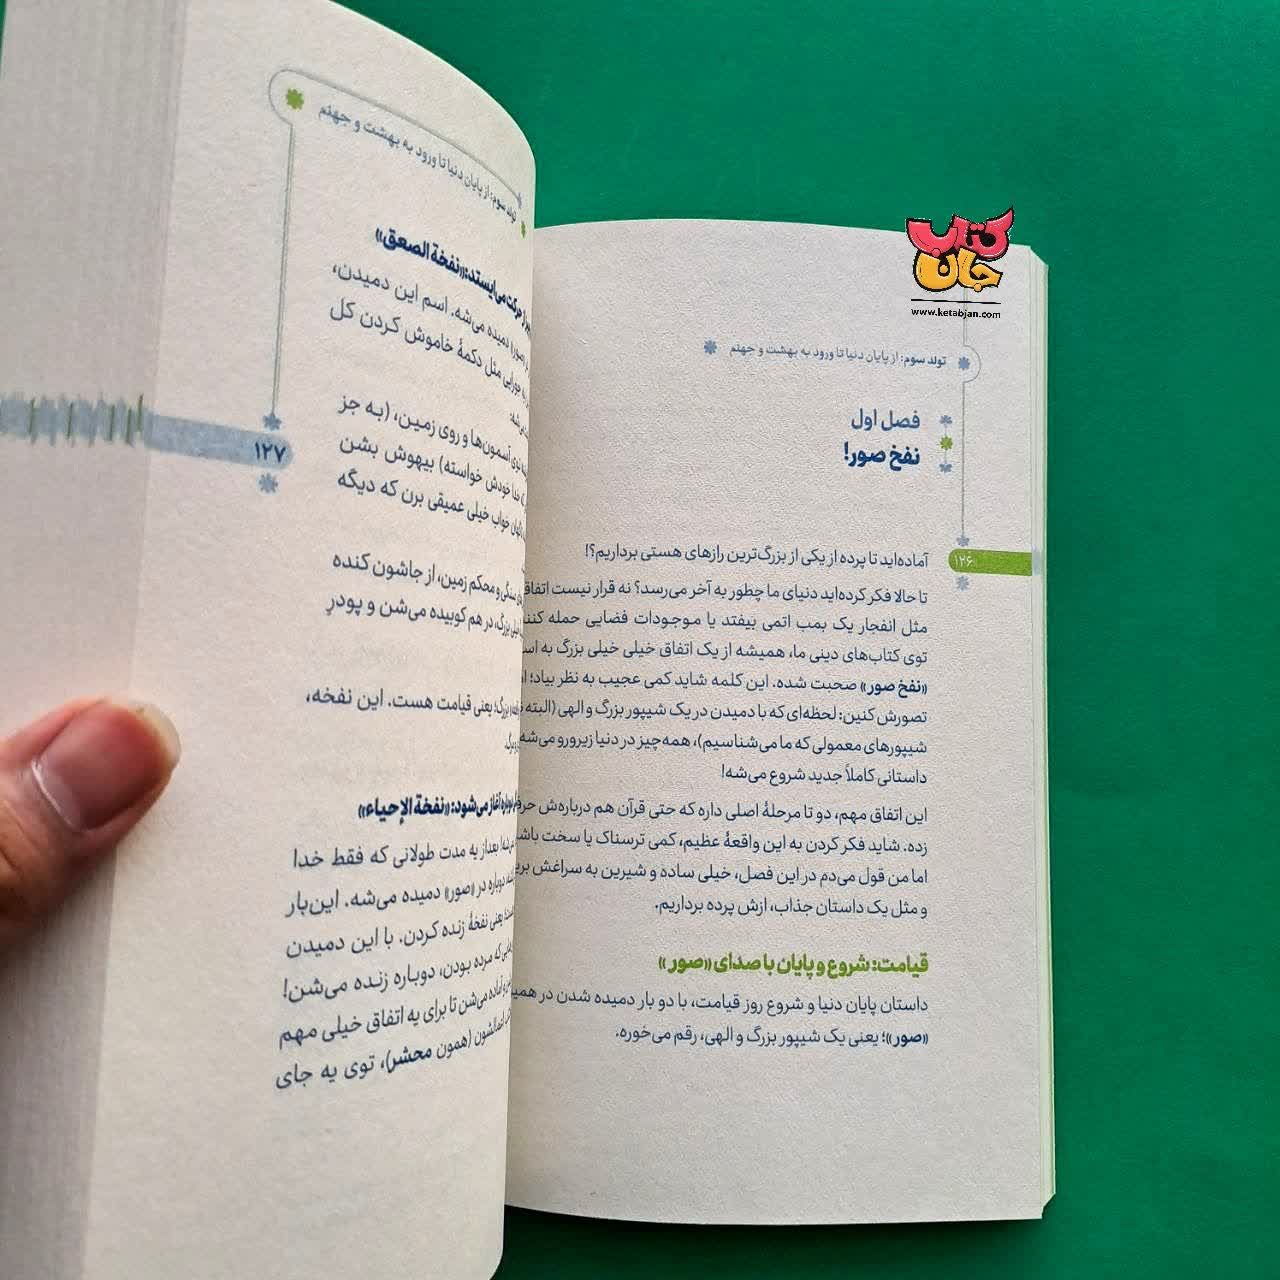 کتاب جان
www.ketabjan.com
تولد سوم: از پایان دنیا تا ورود به بهشت و جهنم
فصل اول
نفخ صور!
۱۲۶
آماده‌اید تا پرده از یکی از بزرگ‌ترین رازهای هستی برداریم؟!
تا حالا فکر کرده‌اید دنیای ما چطور به آخر می‌رسد؟ نه قرار نیست
مثل انفجار یک بمب اتمی بیفتد یا موجودات فضایی حمله
توی کتاب‌های دینی ما، همیشه از یک اتفاق خیلی خیلی بزرگ به
«نفخ صور» صحبت شده. این کلمه شاید کمی عجیب به نظر بیاد؛
تصورش کنین: لحظه‌ای که با دمیدن در یک شیپور بزرگ و الهی (البته
شیپورهای معمولی که ما می‌شناسیم)، همه‌چیز در دنیا زیرورو می‌شه
داستانی کاملاً جدید شروع می‌شه!
این اتفاق مهم، دو تا مرحلهٔ اصلی داره که حتی قرآن هم درباره‌ش
زده. شاید فکر کردن به این واقعهٔ عظیم، کمی ترسناک یا سخت
اما من قول می‌دم در این فصل، خیلی ساده و شیرین به سراغش
و مثل یک داستان جذاب، ازش پرده برداریم.
قیامت: شروع و پایان با صدای «صور»
داستان پایان دنیا و شروع روز قیامت، با دو بار دمیده شدن در
«صور»؛ یعنی یک شیپور بزرگ و الهی، رقم می‌خوره.
تولد سوم: از پایان دنیا تا ورود به بهشت و جهنم
حرکت می‌ایستد: «نفخة الصعق»
دمیده می‌شه. اسم این دمیدن،
جورایی مثل دکمهٔ خاموش کردن کل
توی آسمون‌ها و روی زمین، (به جز
خدا خودش خواسته) بیهوش بشن
خواب خیلی عمیقی برن که دیگه
۱۲۷
سنگی و محکم زمین، از جاشون کنده
بزرگ، در هم کوبیده می‌شن و پودرِ
بزرگ؛ یعنی قیامت هست. این نفخه،
دوباره آغاز می‌شود: «نفخة الإحیاء»
بعداز یه مدت طولانی که فقط خدا
دوباره در «صور» دمیده می‌شه. این‌بار
یعنی نفخهٔ زنده کردن. با این دمیدن
که مرده بودن، دوباره زنده می‌شن!
آماده می‌شن تا برای یه اتفاق خیلی مهم
اعمالشون (همون محشر)، توی یه جای